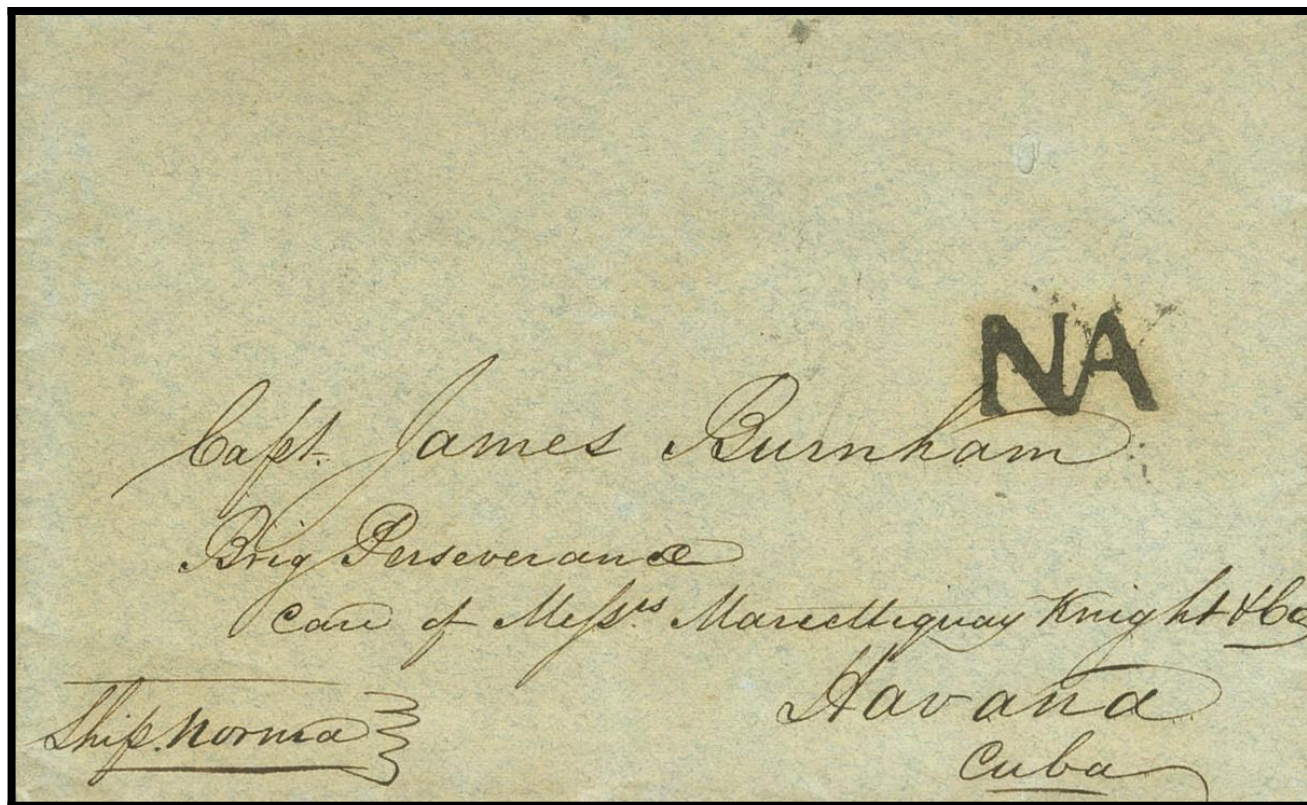 NA
Capt. James Burnham
Brig Perseverance
Care of Mess.rs Knight & Co
Havana
Cuba
Ship Norma